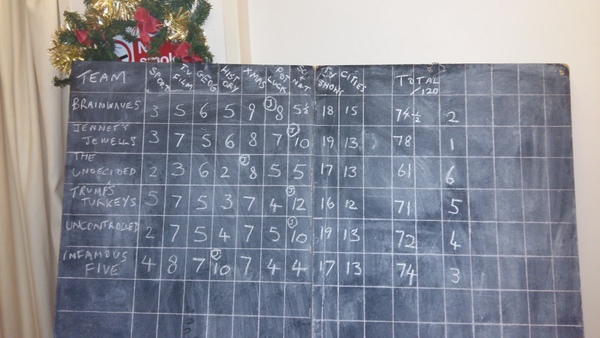 TEAM SPORT T.V FILM GEOG HIST ORY XMAS POT LUCK SCI NAT T.V SHOWS CITIES TOTAL /120
BRAINWAVES 3 5 6 5 9 J 8 5½ 18 15 74½ 2
JENNET'S
JOWELLS 3 7 5 6 8 7 J 10 19 13 78 1
THE
UNDECIDED 2 3 6 2 J 8 5 5 17 13 61 6
TRUMPS
TURKEYS 5 7 5 3 7 4 J 12 16 12 71 5
UNCONTROLLED 2 7 5 4 7 5 J 10 19 13 72 4
INFAMOUS
FIVE 4 8 7 J 10 7 4 4 17 13 74 3